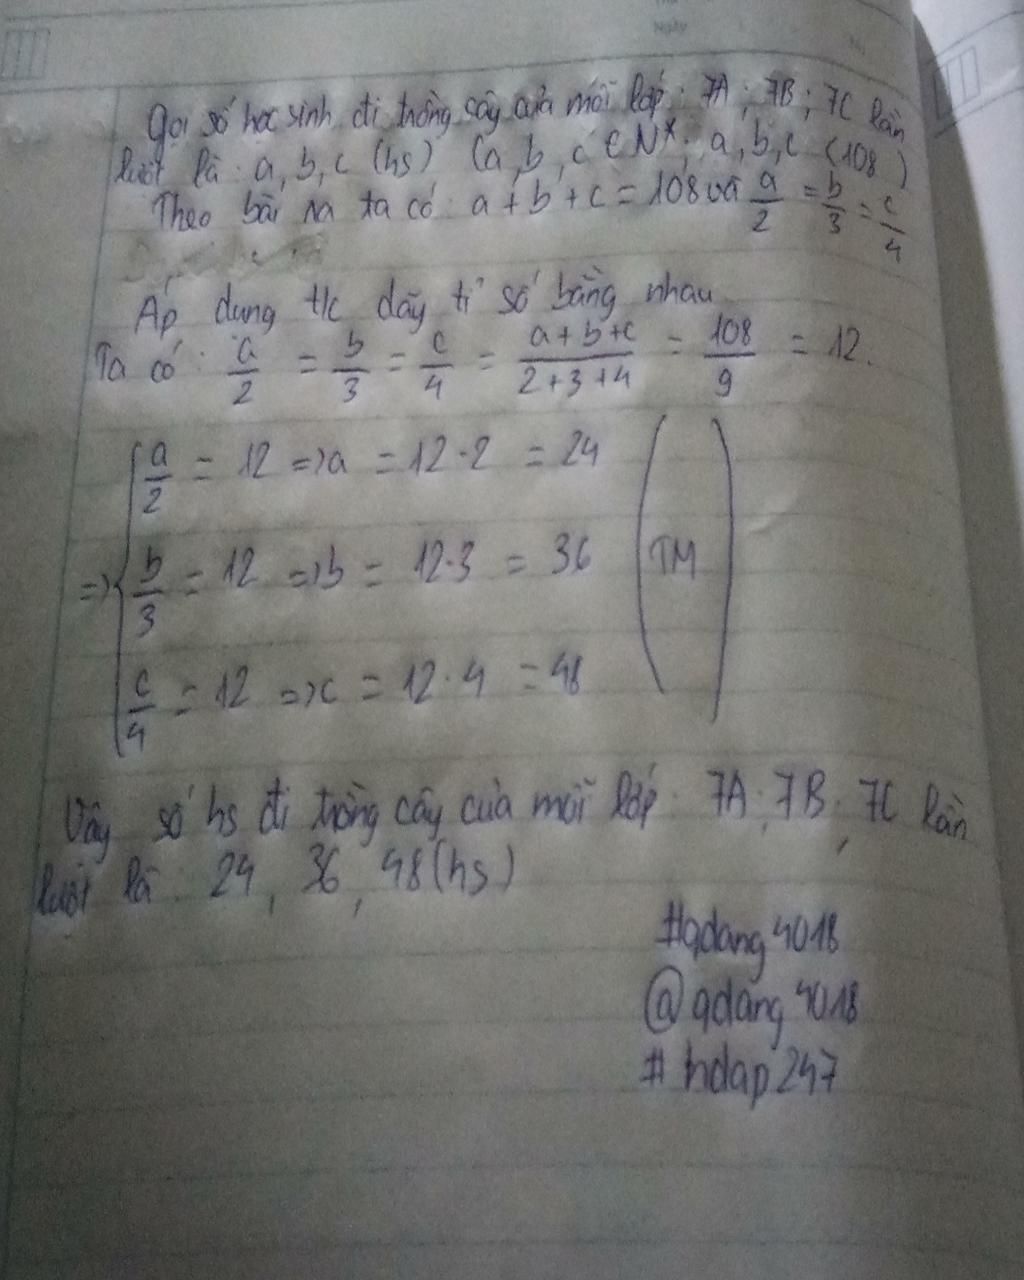 Ngày
No
Gọi số học sinh đi trồng cây của mỗi lớp: 7A; 7B; 7C lần
lượt là: a, b, c (hs) (a, b, c ∈ N*; a, b, c < 108)
Theo bài ra ta có: a + b + c = 108 và a/2 = b/3 = c/4
Áp dụng t/c dãy tỉ số bằng nhau
Ta có: a/2 = b/3 = c/4 = (a + b + c)/(2 + 3 + 4) = 108/9 = 12.
a/2 = 12 => a = 12 . 2 = 24
=> { b/3 = 12 => b = 12 . 3 = 36 (TM)
c/4 = 12 => c = 12 . 4 = 48
Vậy số hs đi trồng cây của mỗi lớp: 7A; 7B; 7C lần
lượt là: 24, 36, 48 (hs)
#qdang4018
@qdang4018
#hdap247